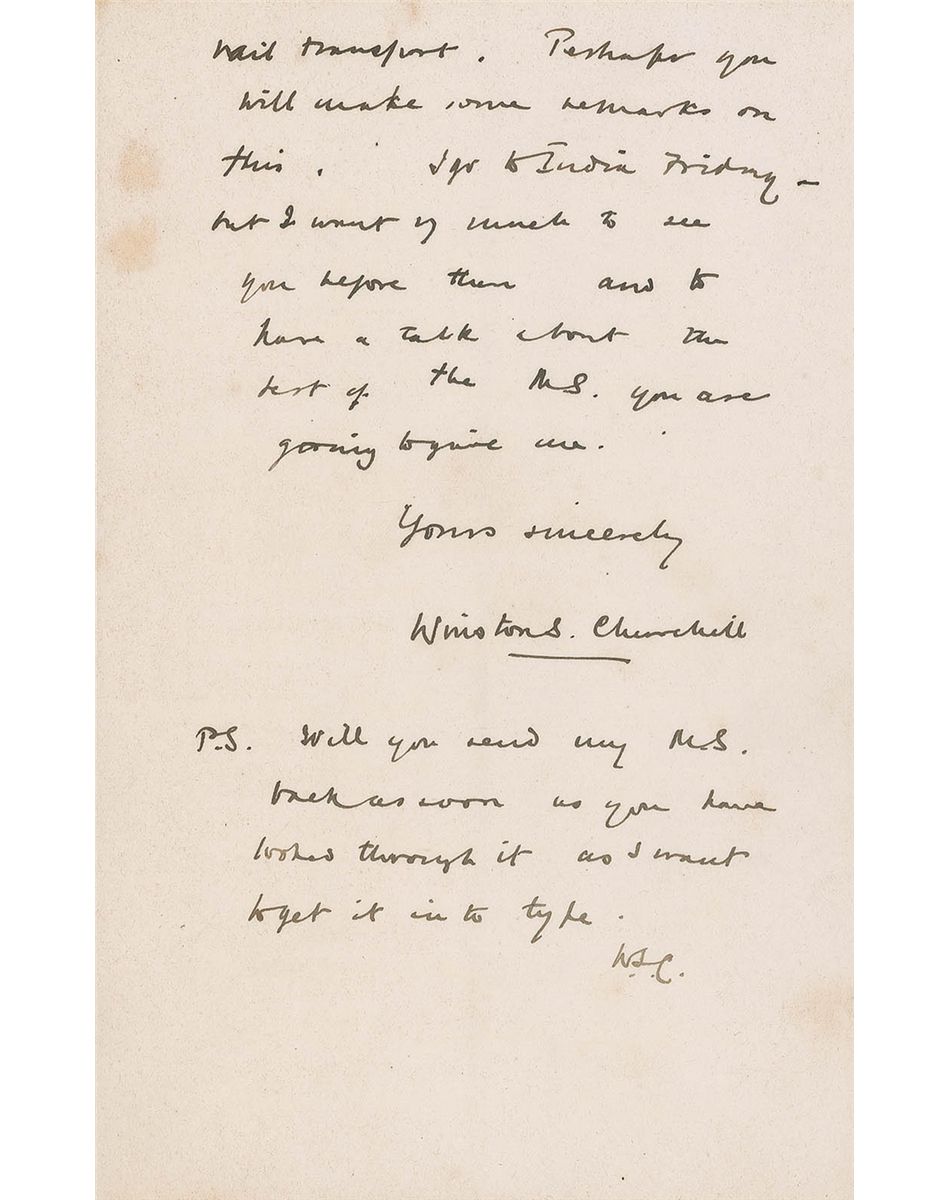 rail transport. Perhaps you
will make some remarks on
this. I go to India Friday –
but I want vy much to see
you before then and to
have a talk about the
rest of the MS. you are
going to give me.
Yours sincerely
Winston S. Churchill
P.S. Will you send my MS.
back as soon as you have
looked through it as I want
to get it in to type.
W.S.C.